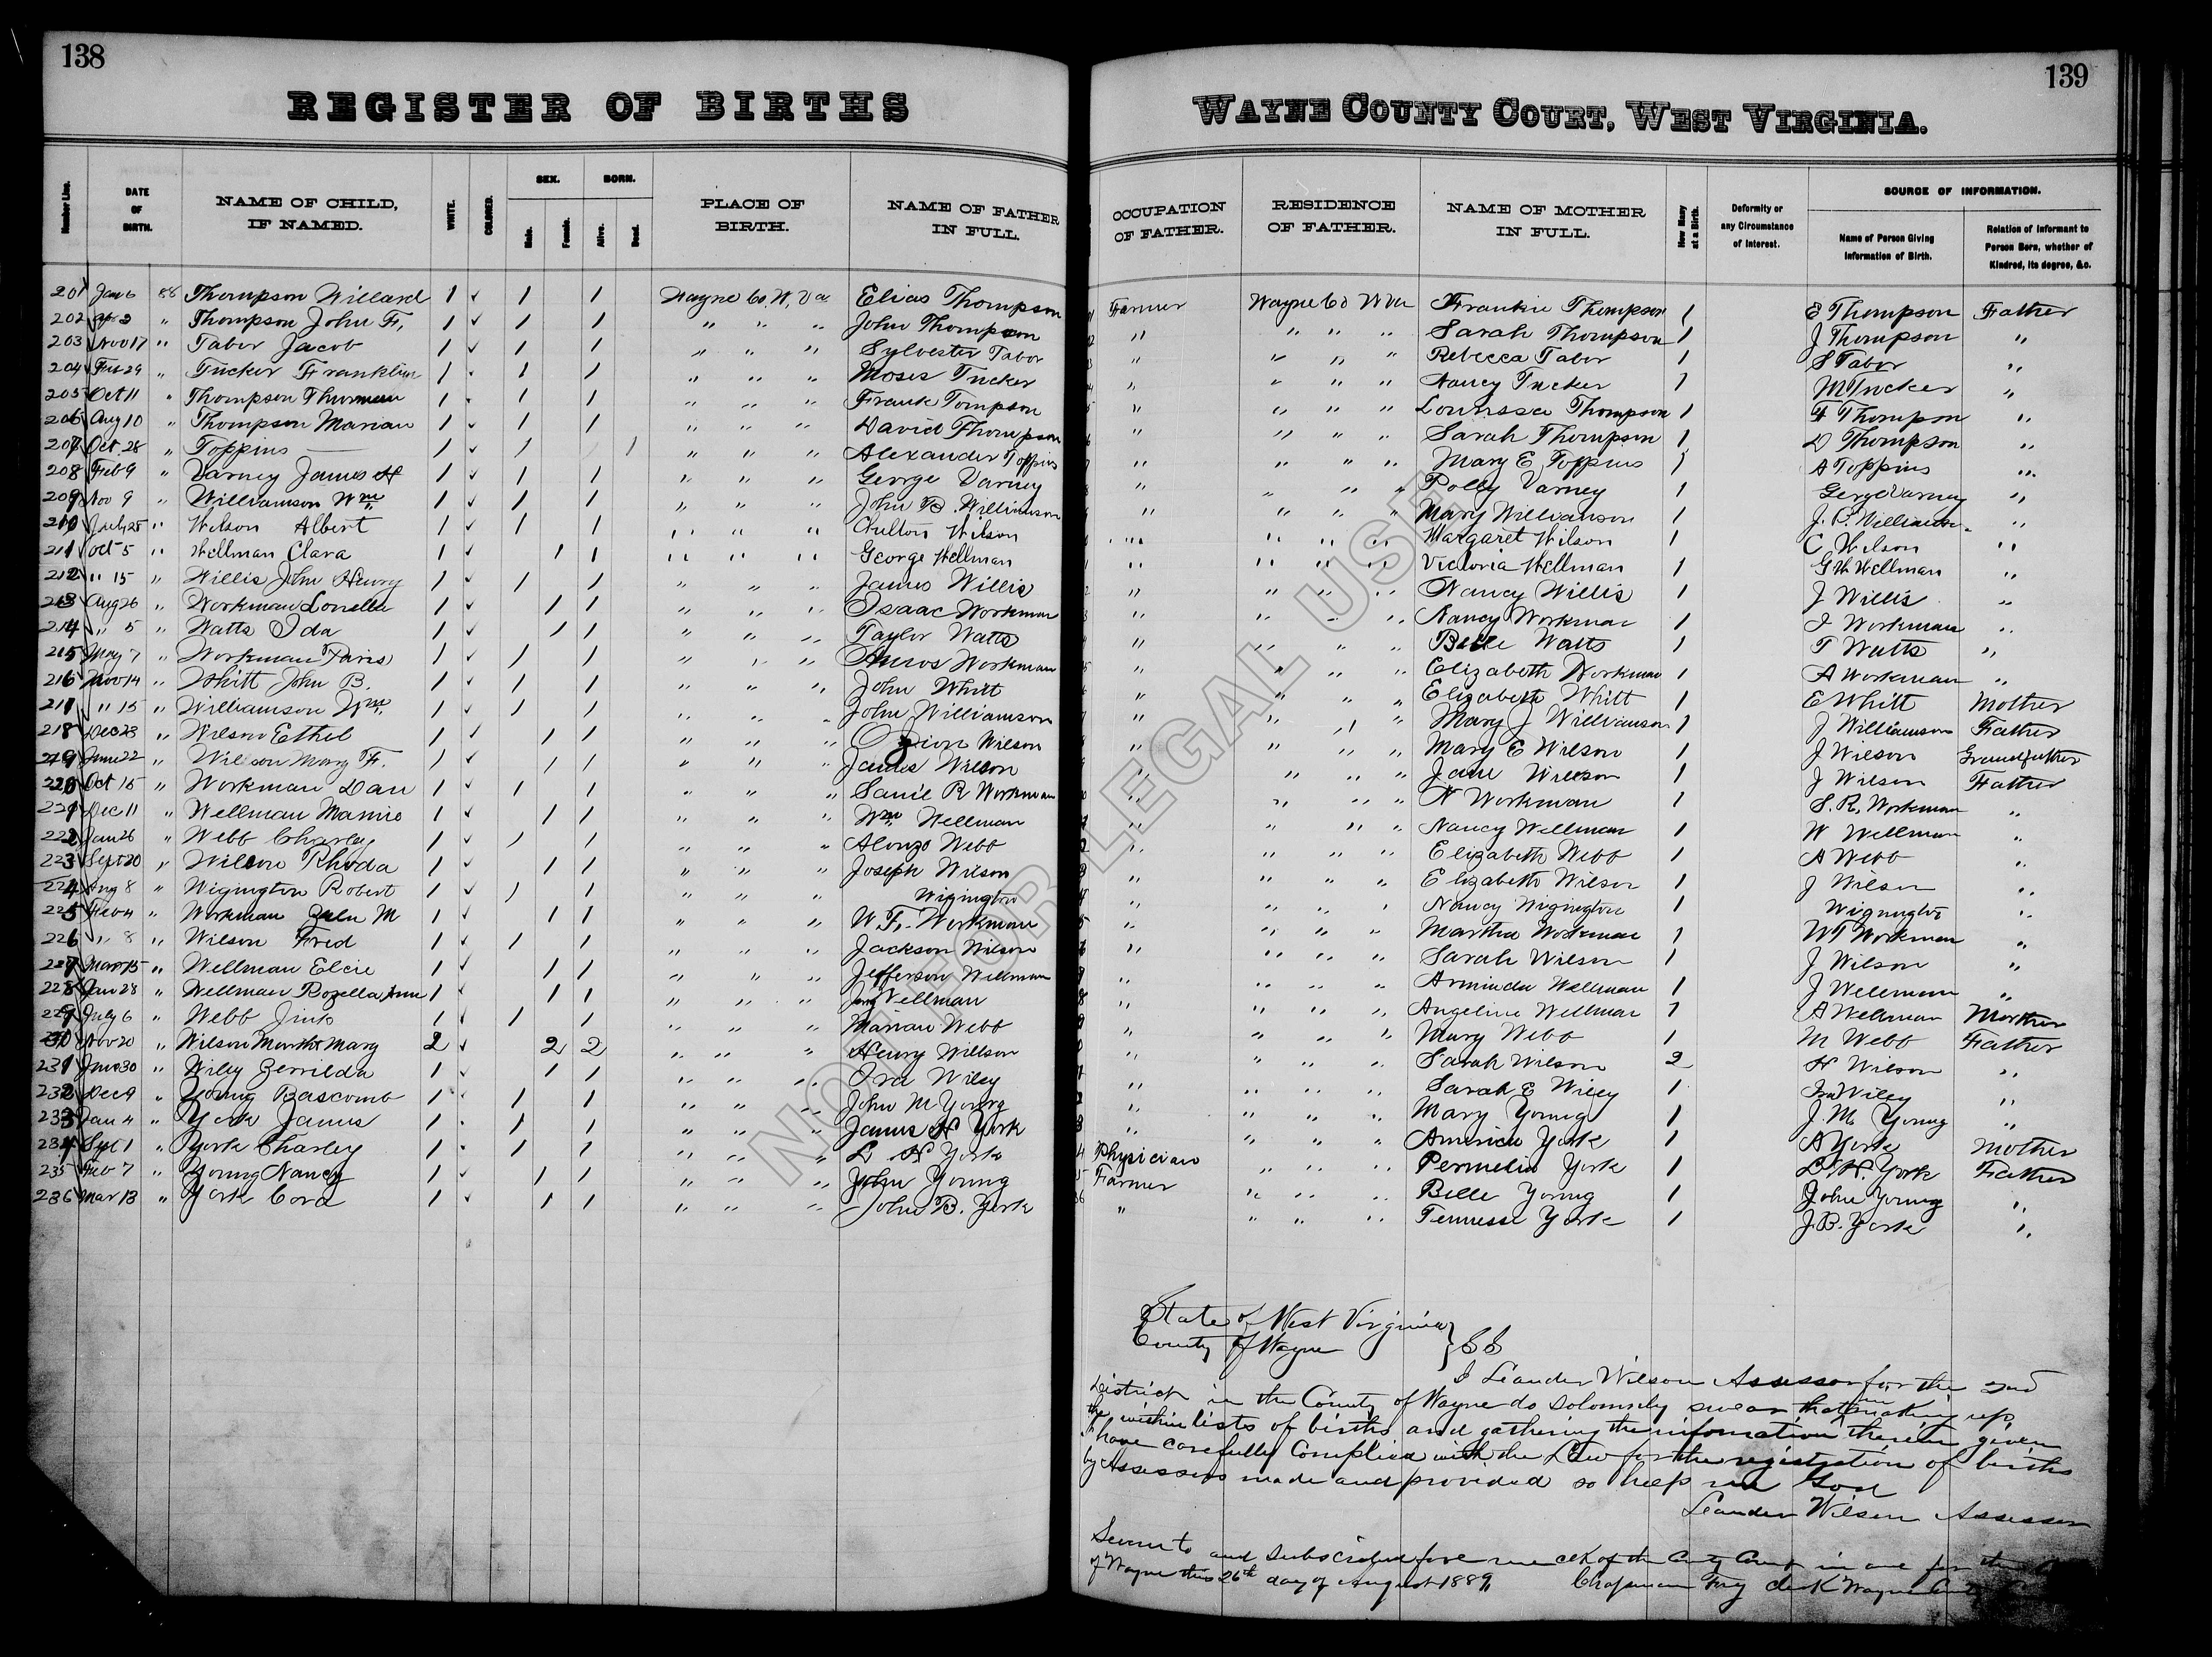 138
REGISTER OF BIRTHS
Number Line.
DATE OF BIRTH.
NAME OF CHILD, IF NAMED.
WHITE.
COLORED.
SEX.
Male.
Female.
BORN.
Alive.
Dead.
PLACE OF BIRTH.
NAME OF FATHER IN FULL.
201 Jan 6 88 Thompson Willard 1 ✓ 1 1 Wayne Co. W. Va Elias Thompson
202 Apr 2 " Thompson John F. 1 ✓ 1 1 " " " John Thompson
203 Nov 17 " Tabor Jacob 1 ✓ 1 1 " " " Sylvester Tabor
204 Feb 29 " Tucker Franklin 1 ✓ 1 1 " " " Moses Tucker
205 Oct 11 " Thompson Thurman 1 1 1 " " " Frank Tompson
206 Aug 10 " Thompson Marian 1 ✓ 1 1 " " " David Thompson
207 Oct 28 " Toppins — 1 ✓ 1 1 " " " Alexander Toppins
208 Feb 9 " Varney James H 1 ✓ 1 1 " " " George Varney
209 Nov 9 " Williamson Wm 1 ✓ 1 1 " " " John B. Williamson
210 July 25 " Wilson Albert 1 ✓ 1 1 " " " Chilton Wilson
211 Oct 5 " Wellman Clara 1 ✓ 1 1 " " " George Wellman
212 " 15 " Willis John Henry 1 ✓ 1 1 " " " James Willis
213 Aug 26 " Workman 1 ✓ 1 1 " " " Isaac Workman
214 " 5 " Watts Ida 1 ✓ 1 1 " " " Taylor Watts
215 May 7 " Workman 1 ✓ 1 1 " " " Amos Workman
216 Nov 14 " Whitt John B. 1 ✓ 1 1 " " " John Whitt
217 " 15 " Williamson Wm 1 ✓ 1 1 " " " John Williamson
218 Dec 23 " Wilson Ethel 1 ✓ 1 1 " " " Wilson
219 June 22 " Wilson Mary F. 1 ✓ 1 1 " " " James Wilson
220 Oct 15 " Workman Dan 1 ✓ 1 1 " " " R Workman
221 Dec 11 " Wellman Mamie 1 ✓ 1 1 " " " Wm Wellman
222 Jan 26 " Webb Charley 1 ✓ 1 1 " " " Alonzo Webb
223 Sept 20 " Wilson Rhoda 1 ✓ 1 1 " " " Joseph Wilson
224 Aug 8 " Wigington Robert 1 ✓ 1 1 " " " Wigington
225 Feb 4 " Workman M 1 ✓ 1 1 " " " W. F. Workman
226 " 8 " Wilson Fred 1 ✓ 1 1 " " " Jackson Wilson
227 Mar 15 " Wellman Elcie 1 ✓ 1 1 " " " Jefferson Wellman
228 Jan 28 " Wellman Rozella Ann 1 ✓ 1 1 " " " Wellman
229 July 6 " Webb Jink 1 ✓ 1 1 " " " Marian Webb
230 Nov 20 " Wilson Martha Mary 2 ✓ 2 2 " " " Henry Willson
231 30 " Wiley Zerrilda 1 ✓ 1 1 " " " Ira Wiley
232 Dec 9 " Young Bascomb 1 ✓ 1 1 " " " John M Young
233 Jan 4 " York James 1 1 1 " " " James H York
234 Spt 1 " York Charley 1 1 1 " " " L H York
235 Feb 7 " Young Nancy 1 ✓ 1 1 " " " John Young
236 Mar 13 " York Cora 1 ✓ 1 1 " " " John B. York
139
WAYNE COUNTY COURT, WEST VIRGINIA.
OCCUPATION OF FATHER.
RESIDENCE OF FATHER.
NAME OF MOTHER IN FULL.
How Many at a Birth.
Deformity or any Circumstance of Interest.
SOURCE OF INFORMATION.
Name of Person Giving Information of Birth.
Relation of Informant to Person Born, whether of Kindred, its degree, &c.
Farmer Wayne Co W Va Frankie Thompson 1 E Thompson Father
" " " " Sarah Thompson 1 J Thompson "
" " " " Rebecca Tabor 1 S Tabor "
" " " " Nancy Tucker 1 M Tucker "
" " " " Thompson 1 F Thompson "
" " " " Sarah Thompson 1 D Thompson "
" " " " Mary E Toppins 1 A Toppins "
" " " " Polly Varney 1 Varney "
" " " " Mary Williamson 1 J. B. Williamson "
" " " " Margaret Wilson 1 C Wilson "
" " " " Victoria Wellman 1 G W Wellman "
" " " " Nancy Willis 1 J Willis "
" " " " Nancy Workman 1 I Workman "
" " " " Belle Watts 1 T Watts "
" " " " Elizabeth Workman 1 A Workman "
" " " " Elizabeth Whitt 1 E Whitt Mother
" " " " Mary J Williamson 1 J Williamson Father
" " " " Mary E Wilson 1 J Wilson Grandfather
" " " " Jane Wilson 1 J Wilson Father
" " " " N Workman 1 S. R. Workman "
" " " " Nancy Wellman 1 W Wellman "
" " " " Elizabeth Webb 1 A Webb "
" " " " Elizabeth Wilson 1 J Wilson "
" " " " Nancy Wigington 1 Wigington "
" " " " Martha Workman 1 W F Workman "
" " " " Sarah Wilson 1 J Wilson "
" " " " Arminda Wellman 1 J Wellman "
" " " " Angeline Wellman 1 A Wellman Mother
" " " " Mary Webb 1 M Webb Father
" " " " Sarah Wilson 2 H Wilson "
" " " " Sarah E Wiley 1 Ira Wiley "
" " " " Mary Young 1 J. M. Young "
" " " " America York 1 A York Mother
Physician " " " Permelia York 1 L. H. York Father
Farmer " " " Belle Young 1 John Young "
" " " " Tennesse York 1 J. B. York "
State of West Virginia
County of Wayne } SS
I Leander Wilson Assessor for the 2nd
District in the County of Wayne do solomnly swear that in making up
the within lists of births and gathering the information therein given
I have carefully Complied with the Law for the registration of births
by Assessors made and provided so help me God
Leander Wilson Assessor
Sworn to and subscribed before me clk of the Cnty Court in and for the
of Wayne this 26th day of August 1889 Chapman Fry clerk Wayne Cnty
NOT FOR LEGAL USE